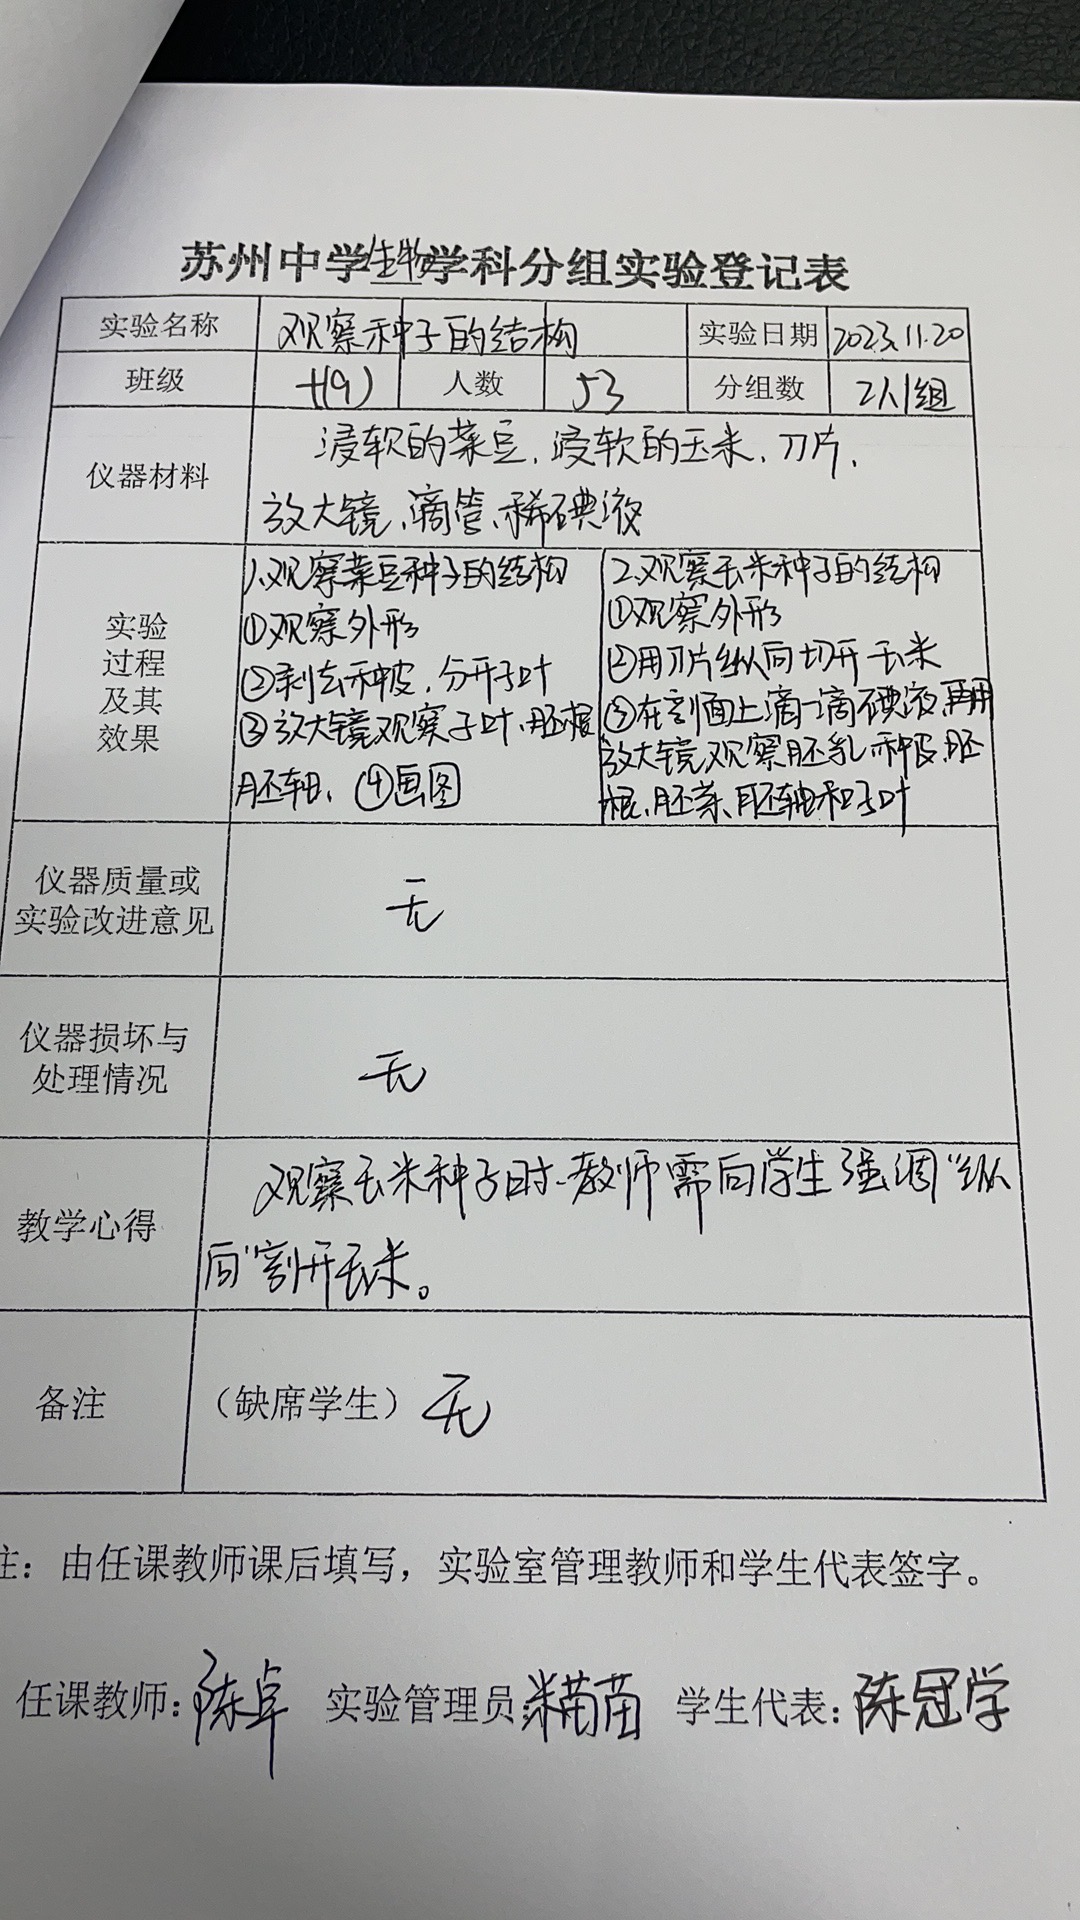 苏州中学生物学科分组实验登记表
实验名称 观察种子的结构 实验日期 2023.11.20
班级 七(9) 人数 53 分组数 2人1组
仪器材料
浸软的菜豆、浸软的玉米、刀片、
放大镜、滴管、稀碘液
实验
过程
及其
效果
1、观察菜豆种子的结构
①观察外形
②剥去种皮，分开子叶
③放大镜观察子叶、胚根
胚轴、④画图
2、观察玉米种子的结构
①观察外形
②用刀片纵向切开玉米
③在剖面上滴一滴碘液，再用
放大镜观察胚乳、种皮、胚
根、胚芽、胚轴和子叶
仪器质量或
实验改进意见
无
仪器损坏与
处理情况
无
教学心得
观察玉米种子时、教师需向学生强调“纵
向”割开玉米。
备注 （缺席学生）无
注：由任课教师课后填写，实验室管理教师和学生代表签字。
任课教师：陈卓 实验管理员：苗苗 学生代表：陈冠学